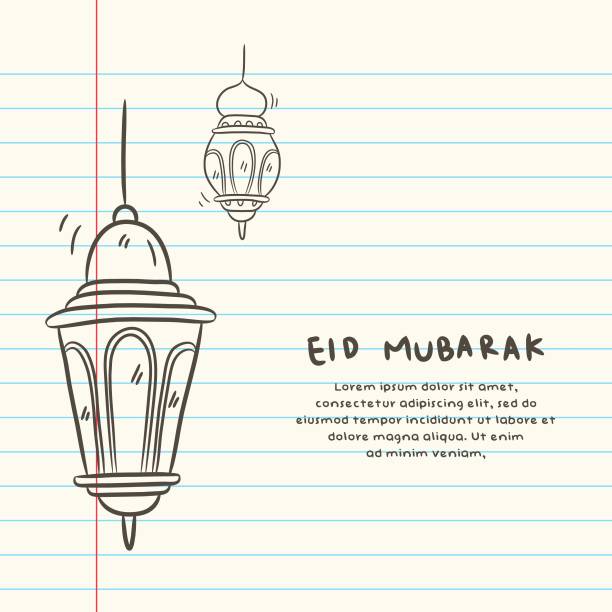 EID MUBARAK
Lorem ipsum dolor sit amet,
consectetur adipiscing elit, sed do
eiusmod tempor incididunt ut labore et
dolore magna aliqua. Ut enim
ad minim veniam,